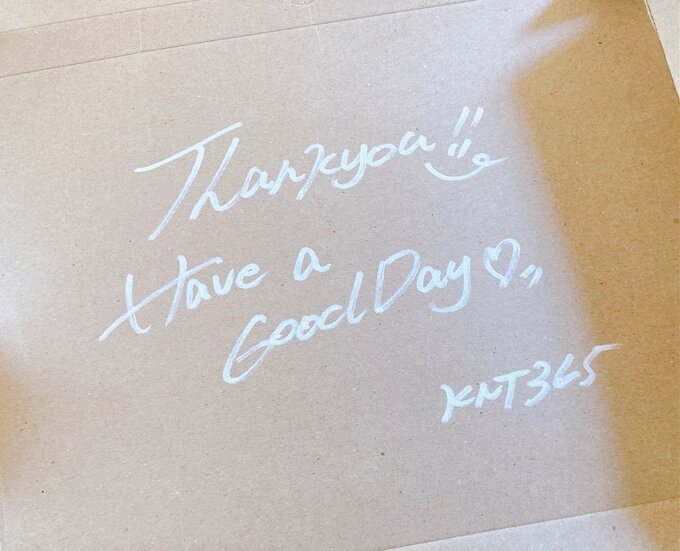 Thankyou!!
Have a
Good Day♡
KNT365